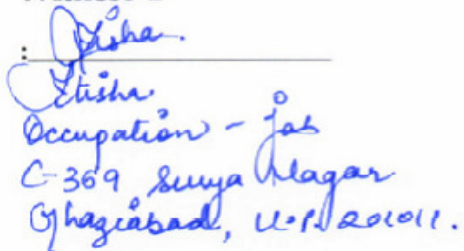 : Itisha.
Itisha.
Occupation - job
C-369 Surya Nagar
Ghaziabad, U.P. 201011.